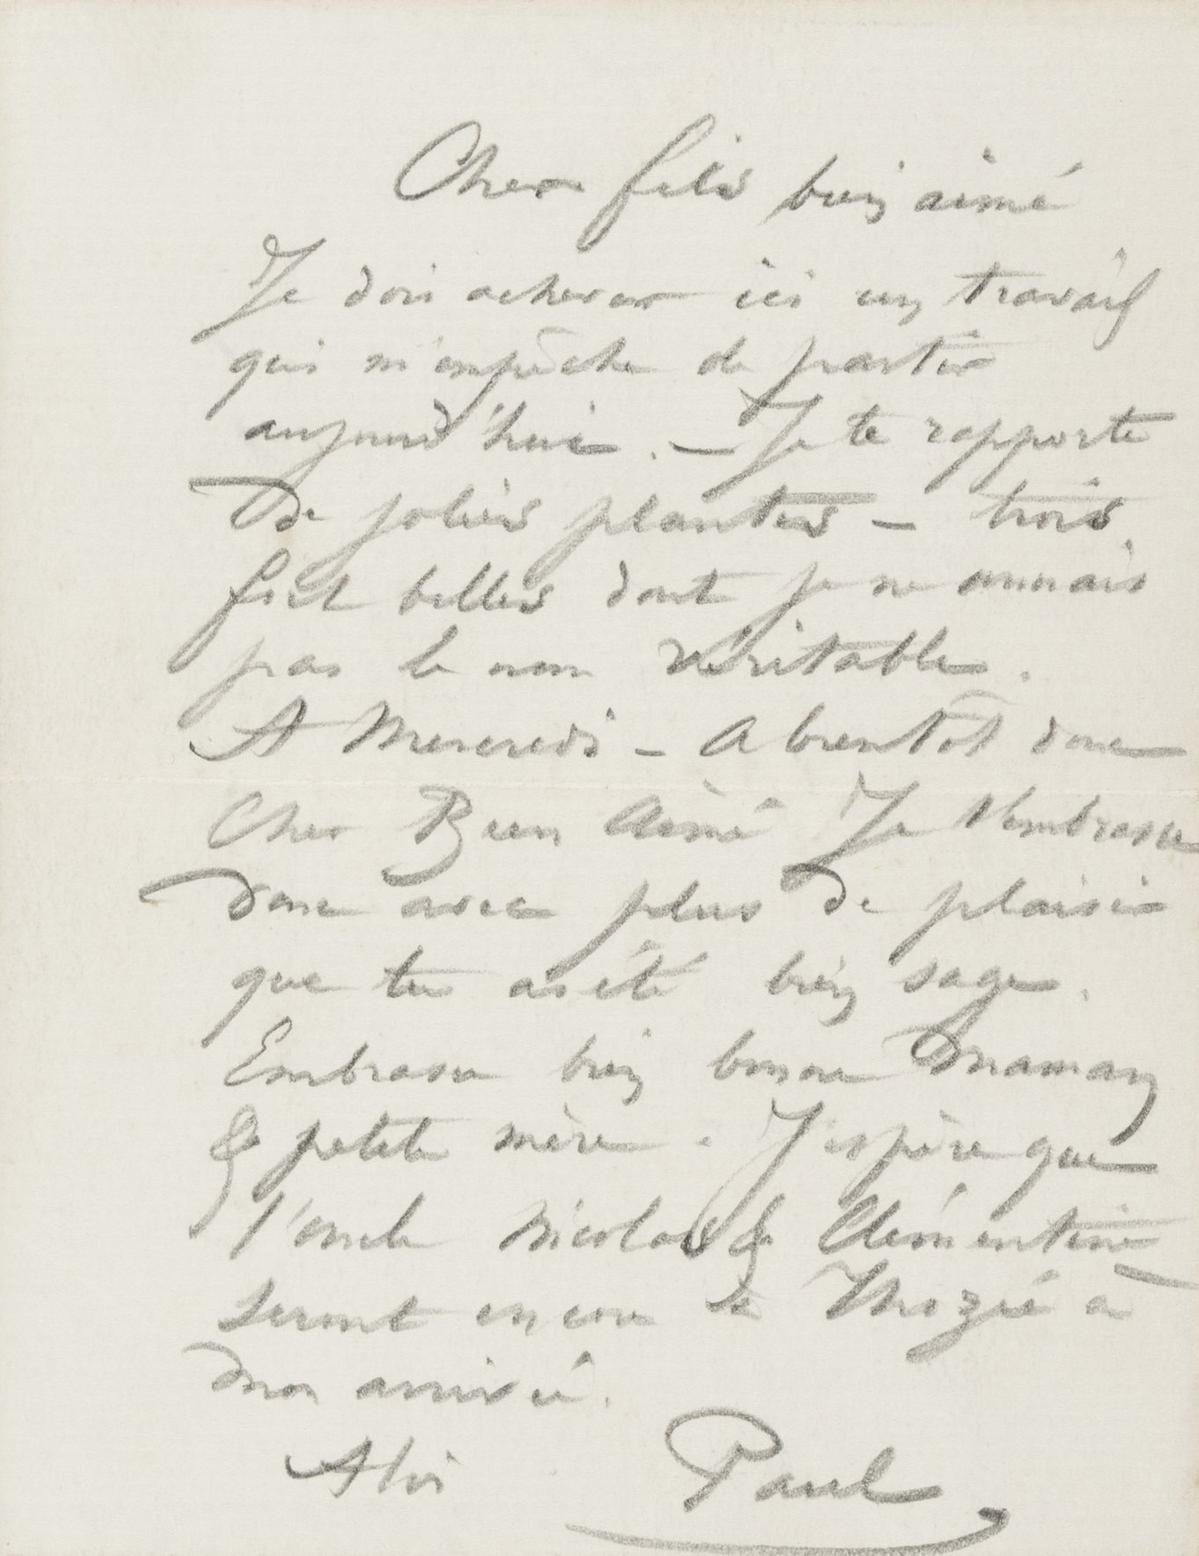 Cher fils bien aimé
Je dois achever ici un travail
qui m'empêche de partir
aujourd'hui. — Je te rapporte
de jolies plantes — trois
fort belles dont je ne connais
pas le nom véritable.
A Mercredi — A bientôt donc
Cher Bien Aimé Je t'embrasse
donc avec plus de plaisir
que tu as été bien sage.
Embrasse bien bonne maman
& petite mère. J'espère que
l'oncle Nicolas & Clémentine
seront encore à Thozée à
mon arrivée.
A toi Paul